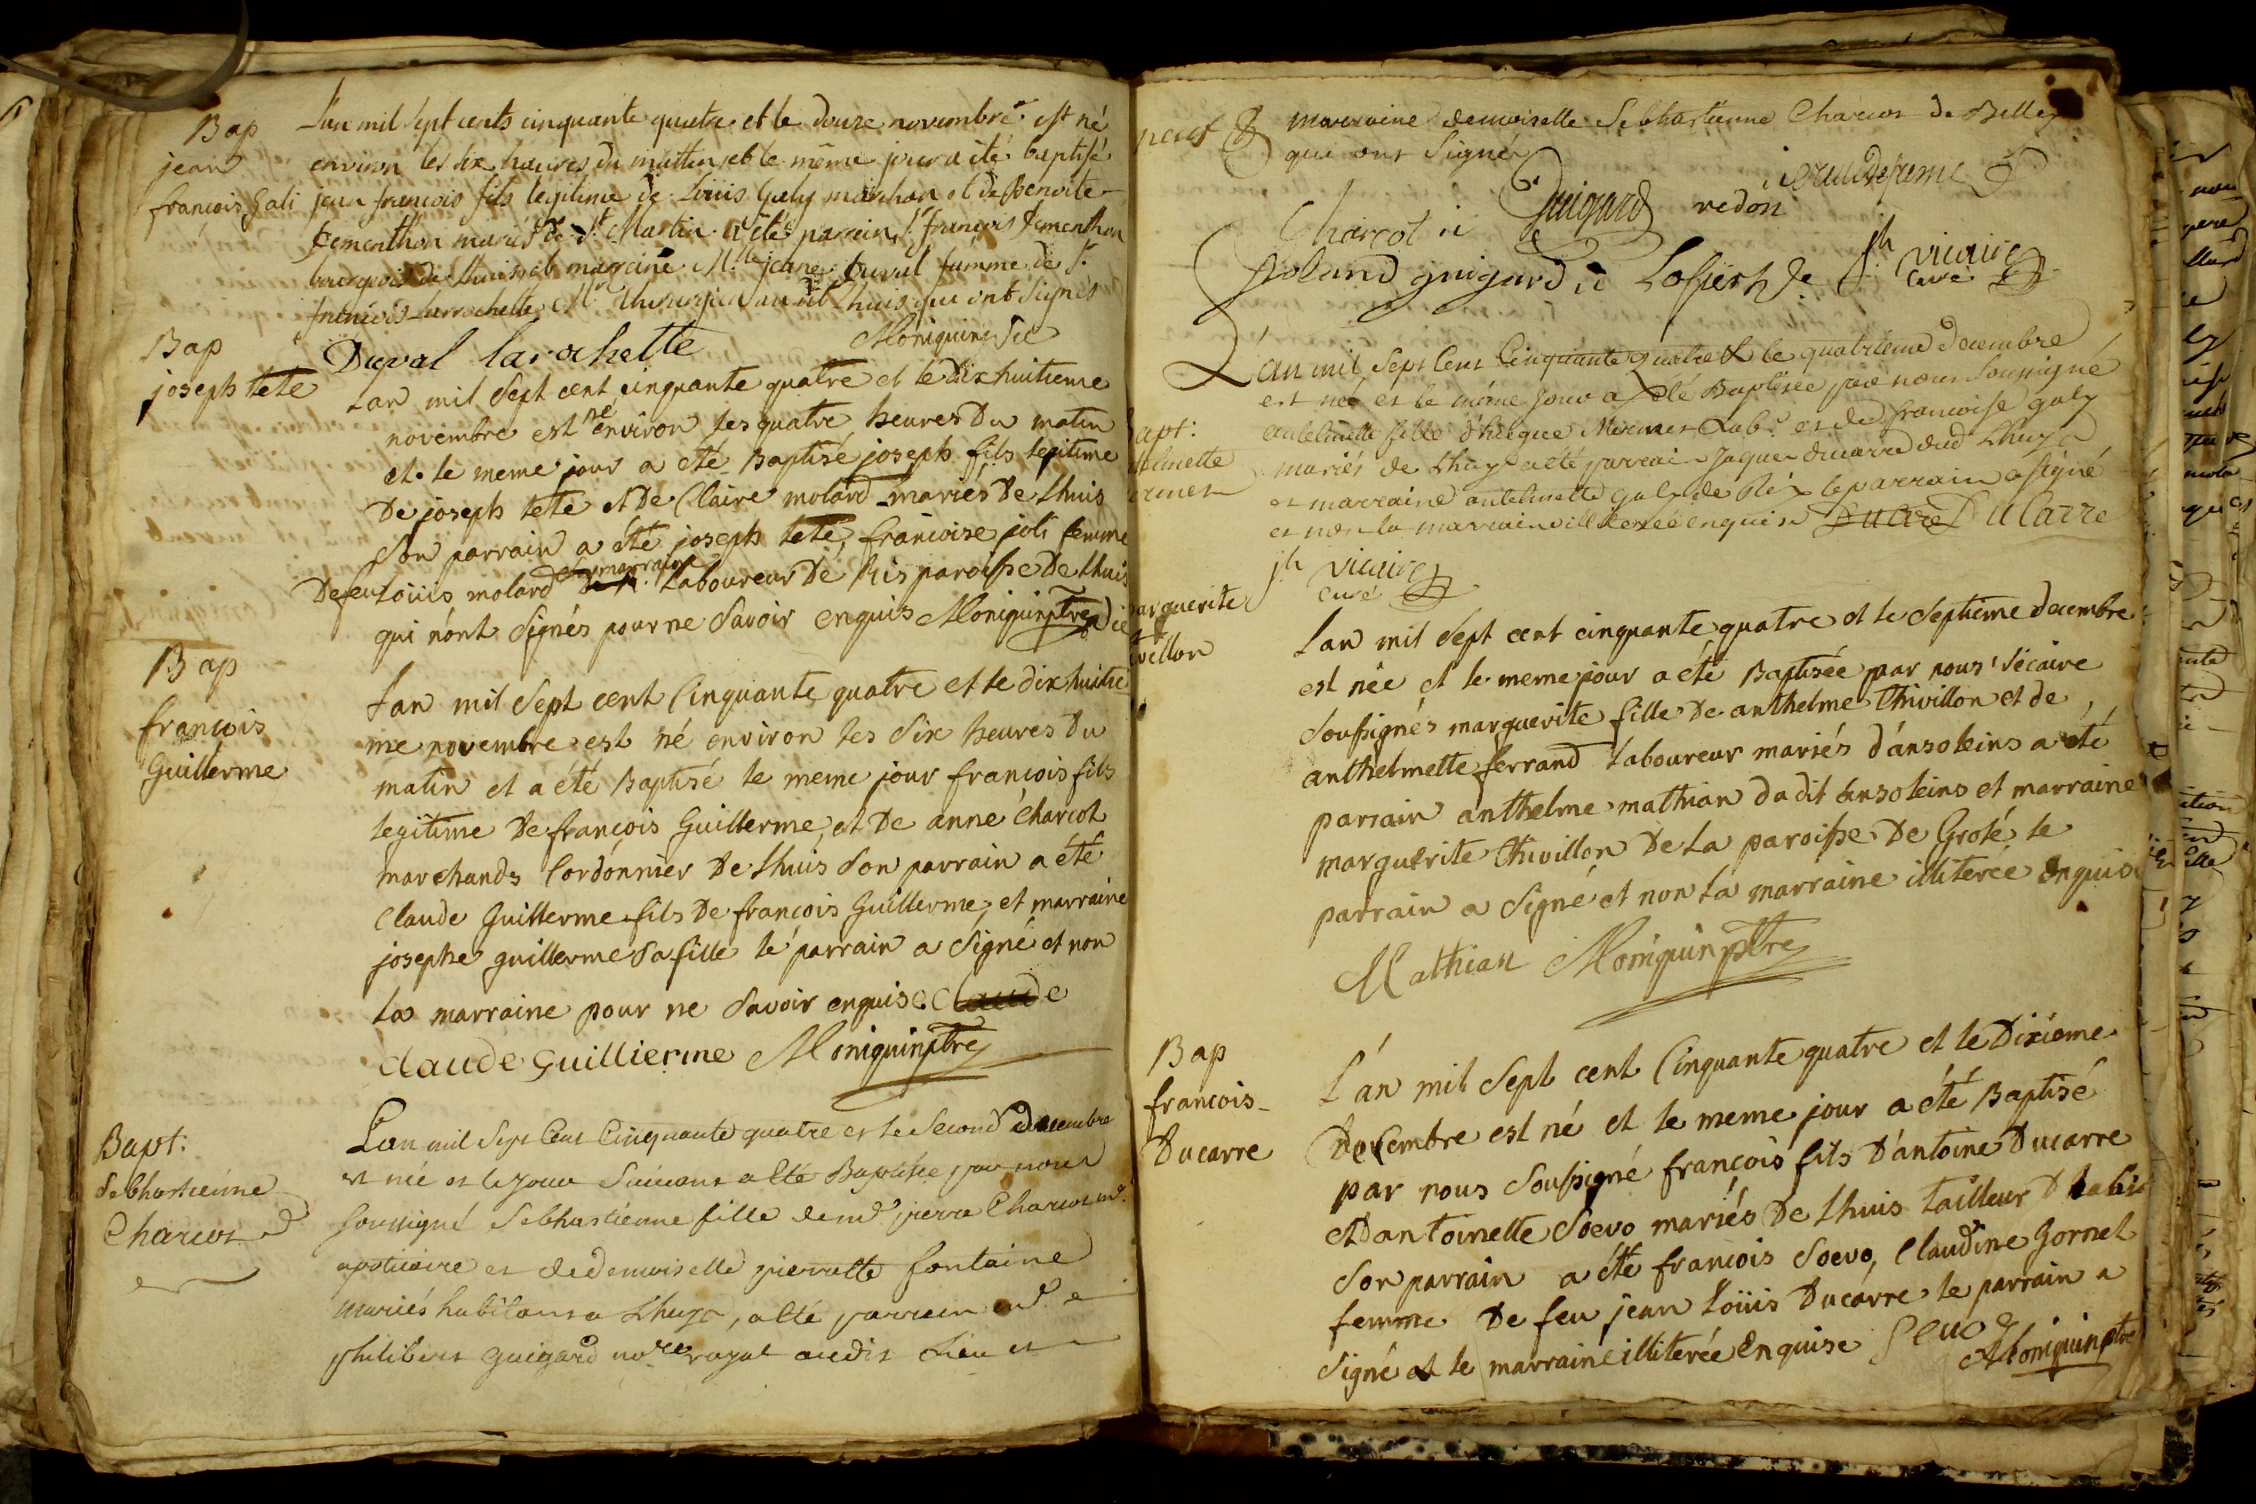 Bap
jean
françois Gali
L'an mil sept cents cinquante quatre et le douze novembre est né
environ les six heures du mattin et le même jour a été baptisé
jean françois fils legitime de Louis Galy marchan et de Benoite
fementhon mariés de St Martin a été parrein, Sr françois fementhon
bourgeois de Lhuis et marraine Mlle jeane Duval famme de Sr
françois Larrochette Mre Chirurgien au dit Lhuis qui ont signés
Duval larochette Moniquin vic
Bap
joseph tete
Lan mil sept cent cinquante quatre et le dix huitieme
novembre est né environ les quatre heures Du matin
et le meme jour a eté Baptisé joseph fils legitime
De joseph tete et De Claire molard mariés De Lhuis
son parrain a été joseph teté, francoise joli femme
De feu Loüis molard sa marraine Laboureur De Ris paroisse De Lhuis
qui n'ont signés pour ne savoir enquis Moniquin ptre vic
Bap
françois
Guillerme
Lan mil sept cent Cinquante quatre et le dix huitie
me novembre est né environ les six heures Du
matin et a été Baptisé le meme jour françois fils
legitime De françois Guillerme et De anne Charcot
marchands Cordonnier De Lhuis son parrain a été
Claude Guillerme fils De françois Guillerme, et marraine
josephe guillerme sa fille le parrain a signé et non
la marraine pour ne savoir enquise Claude
claude Guillierme Moniquin ptre
Bapt:
Sebhastienne
Charcot
Lan mil sept Cent Cinquante quatre et le second decembre
est née et le jour suivant a Eté Baptisée par nous
soussigné Sebhastienne fille de mr pierre Charcot mre
apoticaire et de demoiselle pierrette fontaine
mariés habitans a Lhuys, a Eté parrein mr
philibert Guigard nore royal audit Lieu et
marraine demoiselle Sebhastienne Charcot de Belley
qui ont signé
Charcot Guigard redon
Roland guigard Vicaire
Curé
Bapt:
L'an mil sept Cent Cinquante quatre et le quatrieme decembre
est née et le même jour a été Baptisée par nous soussigné
antelmette fille d'hugue Mermet Labr et de francoise galy
mariés de Lhuys a été parrain Jaques ducarre dud Lhuys
et marraine antelmette Galy de Rix le parrain a signé
et non la marraine illiterée enquise Ducarre Ducarre
Vicaire
curé
marguerite
thivillon
Lan mil sept cent cinquante quatre et le septieme decembre
est née et le meme jour a été Baptisée par nous vicaire
soussignés marguerite fille De anthelme Thivillon et de
anthelmette ferrand Laboureur mariés d'ansoleins a été
parrain anthelme mathian dudit ansoleins et marraine
marguerite Thivillon De la paroisse De Grolé le
parrain a signé et non la marraine illiterée enquise
Mathian Moniquin ptre
Bap
francois
Ducarre
L'an mil sept cent Cinquante quatre et le Dixieme
Decembre est né et le meme jour a été Baptisé
par nous soussigné françois fils D'antoine Ducarre
et D'antoinette Soevo mariés De Lhuis tailleur D'habis
son parrain a été francois Soevo, Claudine Gornet
femme De feu jean Loüis Ducarre le parrain a
signé et le marraine illiterée enquise Seuo
Moniquin ptre